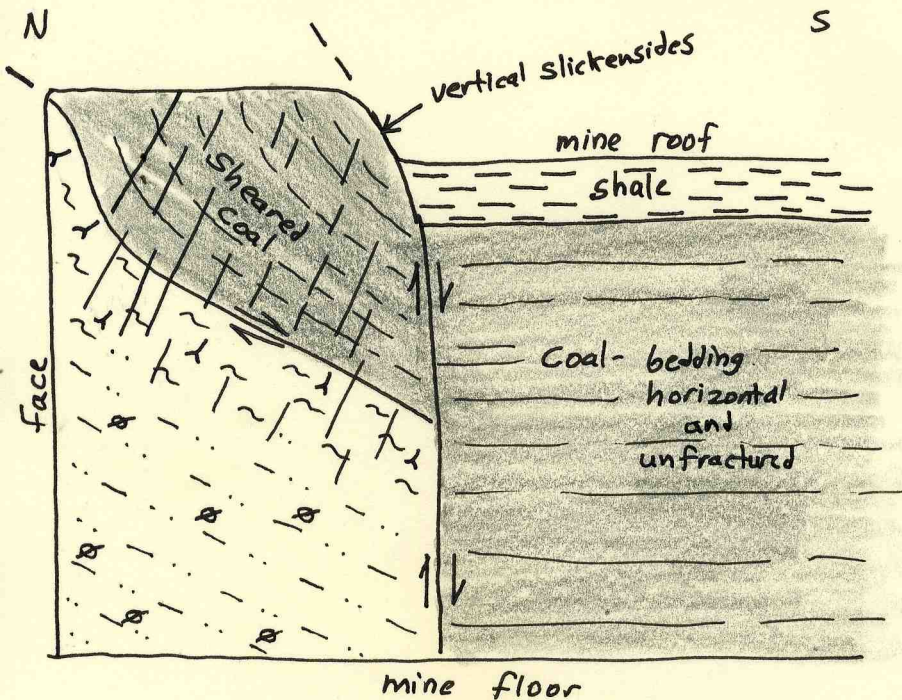 N
S
vertical slickensides
mine roof
shale
Sheared
Coal
Coal - bedding
horizontal
and
unfractured
face
mine floor